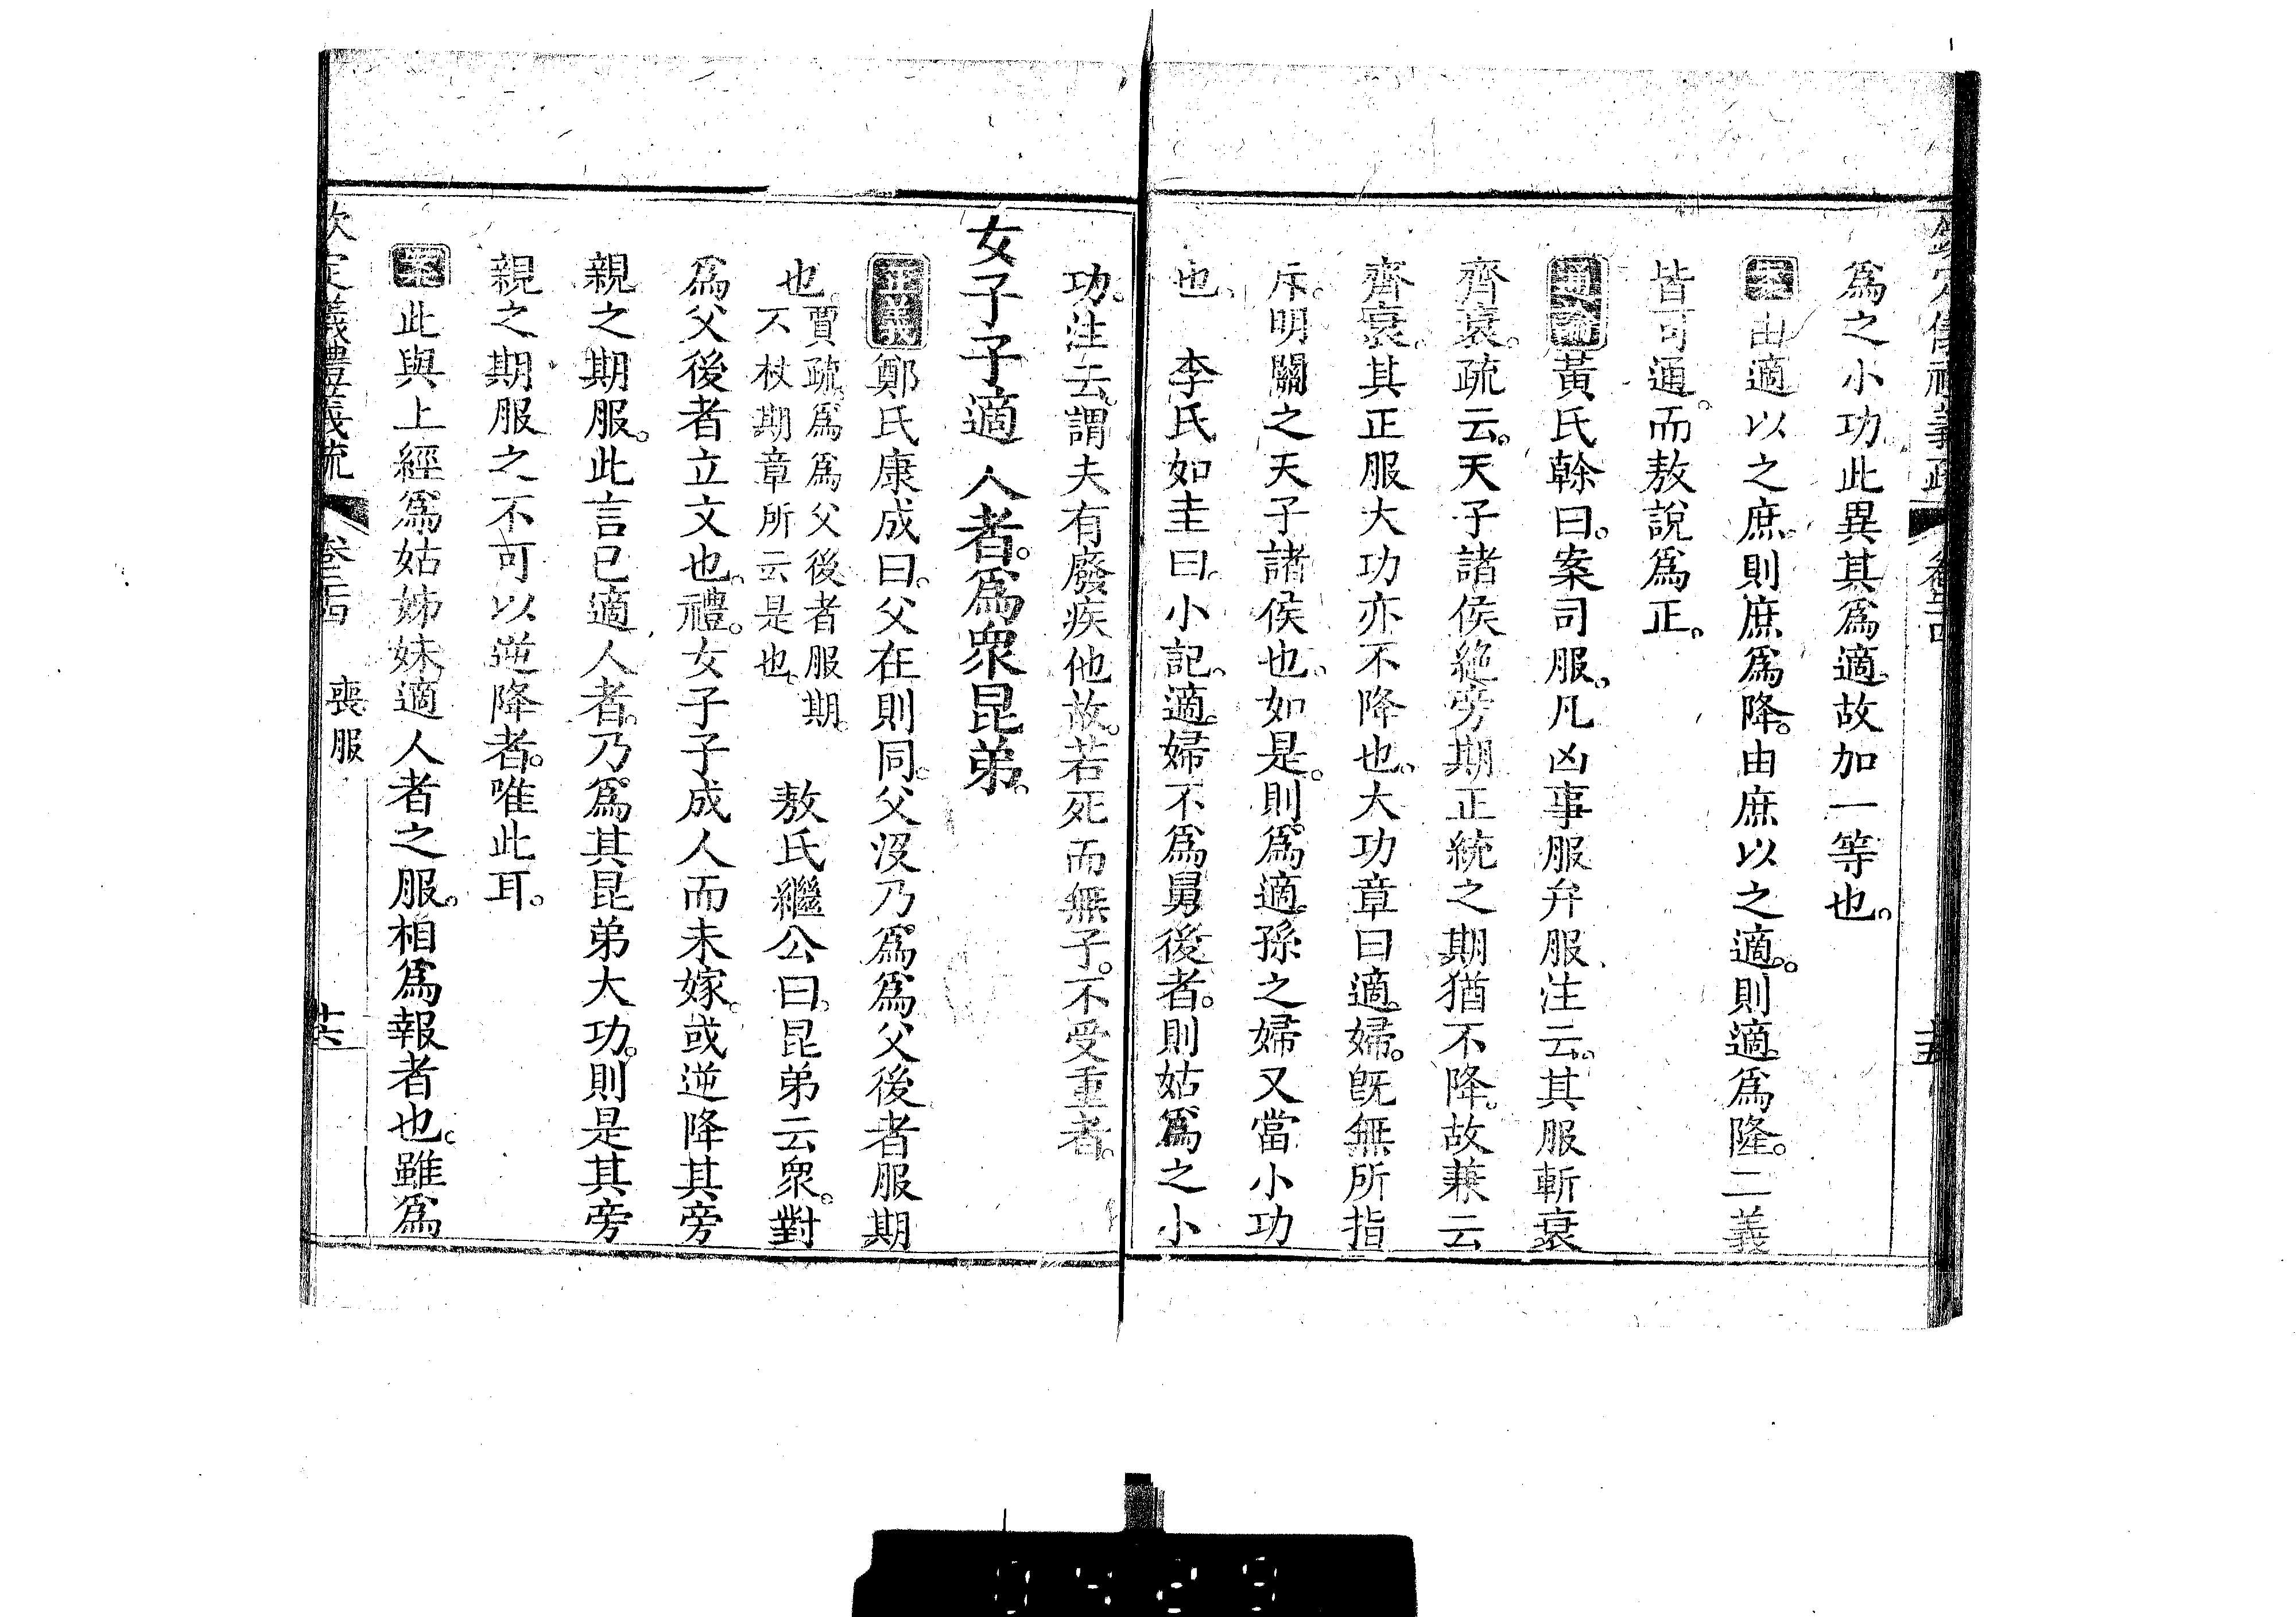 欽定儀禮義疏 卷二十四 十五
爲之小功此異其爲適故加一等也
案由適以之庶則庶爲降由庶以之適則適爲隆二義
皆可通而敖說爲正
通論黃氏榦曰案司服凡凶事服弁服注云其服斬衰
齊衰疏云天子諸侯絕旁期正統之期猶不降故兼云
齊衰其正服大功亦不降也大功章曰適婦旣無所指
斥明關之天子諸侯也如是則爲適孫之婦又當小功
也 李氏如圭曰小記適婦不爲舅後者則姑爲之小
功注云謂夫有廢疾他故若死而無子不受重者
女子子適人者爲衆昆弟
正義鄭氏康成曰父在則同父沒乃爲爲父後者服期
也賈疏爲爲父後者服期不杖期章所云是也 敖氏繼公曰昆弟云衆對
爲父後者立文也禮女子子成人而未嫁或逆降其旁
親之期服此言已適人者乃爲其昆弟大功則是其旁
親之期服之不可以逆降者唯此耳
案此與上經爲姑姊妹適人者之服相爲報者也雖爲
欽定儀禮義疏 卷二十四 喪服 十六